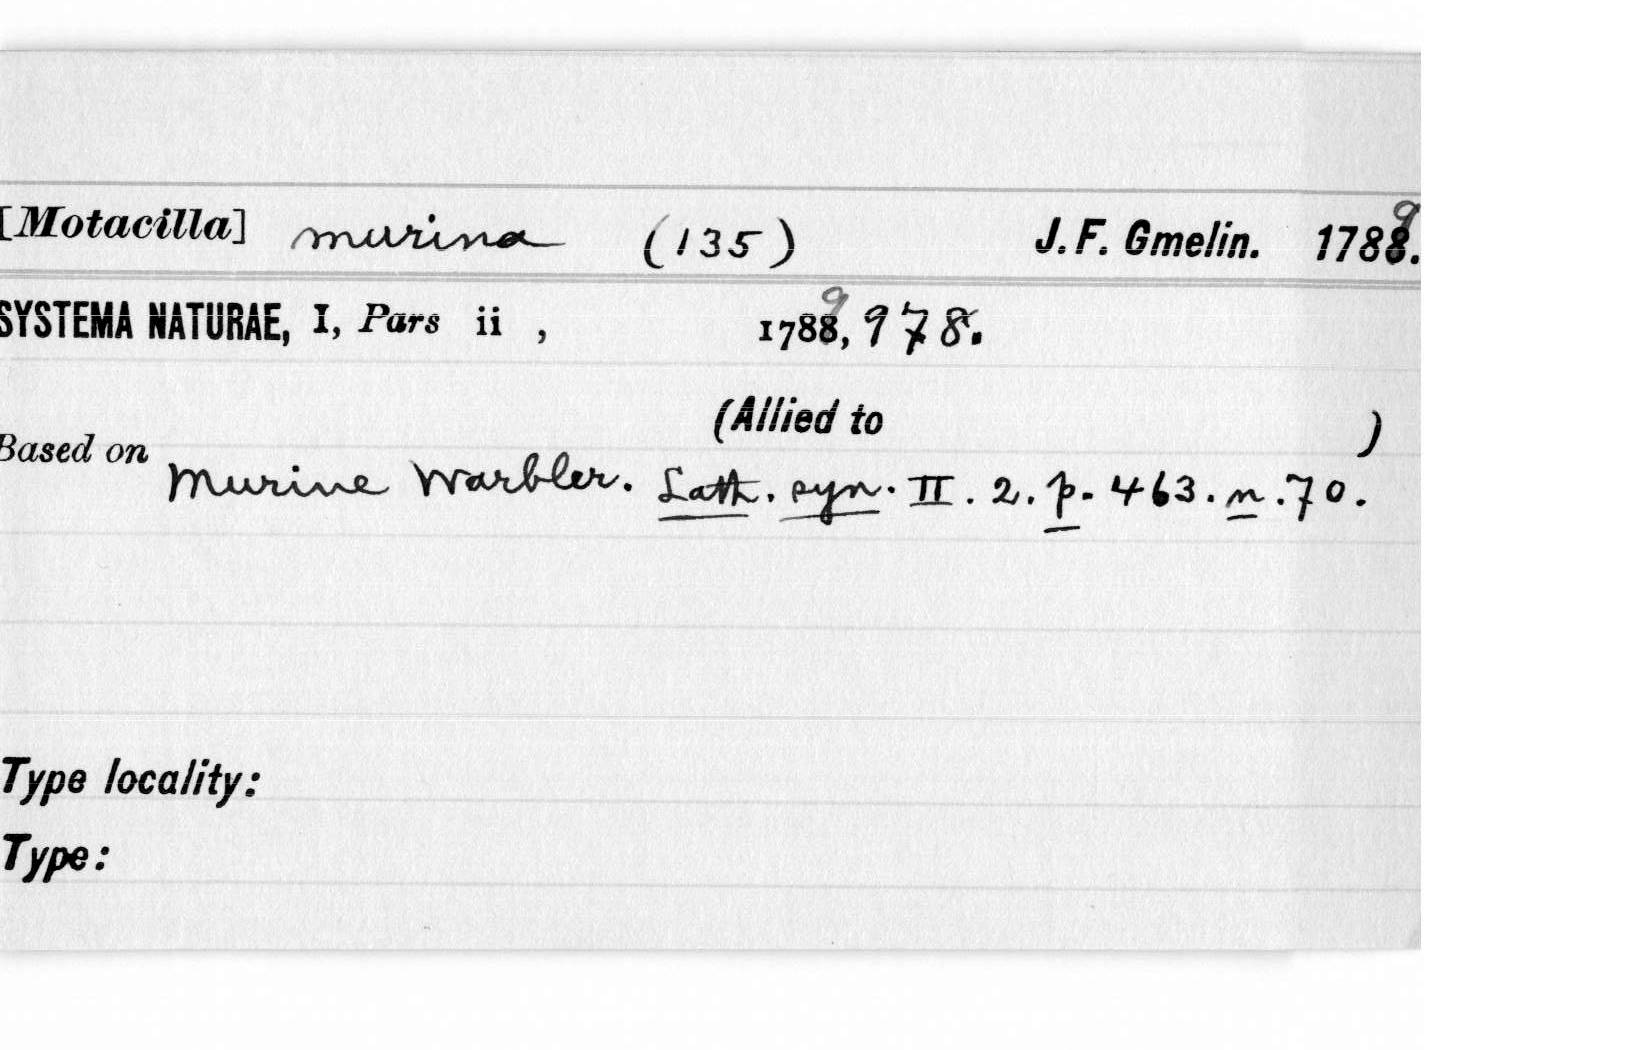 [Motacilla] murina (135) J. F. Gmelin. 1789.
SYSTEMA NATURAE, I, Pars ii , 1789, 978.
(Allied to )
Based on Murine Warbler. Lath. syn. II. 2. p. 463. n. 70.
Type locality:
Type: